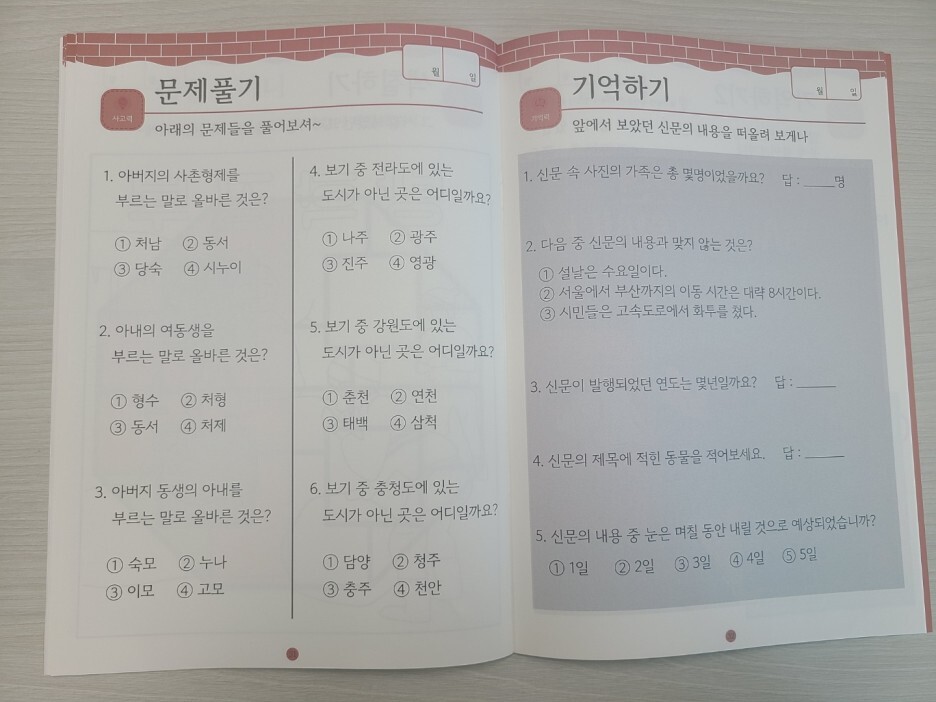 월 일
문제풀기
사고력
아래의 문제들을 풀어보셔~
1. 아버지의 사촌형제를
부르는 말로 올바른 것은?
① 처남 ② 동서
③ 당숙 ④ 시누이
2. 아내의 여동생을
부르는 말로 올바른 것은?
① 형수 ② 처형
③ 동서 ④ 처제
3. 아버지 동생의 아내를
부르는 말로 올바른 것은?
① 숙모 ② 누나
③ 이모 ④ 고모
4. 보기 중 전라도에 있는
도시가 아닌 곳은 어디일까요?
① 나주 ② 광주
③ 진주 ④ 영광
5. 보기 중 강원도에 있는
도시가 아닌 곳은 어디일까요?
① 춘천 ② 연천
③ 태백 ④ 삼척
6. 보기 중 충청도에 있는
도시가 아닌 곳은 어디일까요?
① 담양 ② 청주
③ 충주 ④ 천안
월 일
기억하기
기억력
앞에서 보았던 신문의 내용을 떠올려 보게나
1. 신문 속 사진의 가족은 총 몇명이었을까요? 답 : ____명
2. 다음 중 신문의 내용과 맞지 않는 것은?
① 설날은 수요일이다.
② 서울에서 부산까지의 이동 시간은 대략 8시간이다.
③ 시민들은 고속도로에서 화투를 쳤다.
3. 신문이 발행되었던 연도는 몇년일까요? 답 : _____
4. 신문의 제목에 적힌 동물을 적어보세요. 답 : _____
5. 신문의 내용 중 눈은 며칠 동안 내릴 것으로 예상되었습니까?
① 1일 ② 2일 ③ 3일 ④ 4일 ⑤ 5일